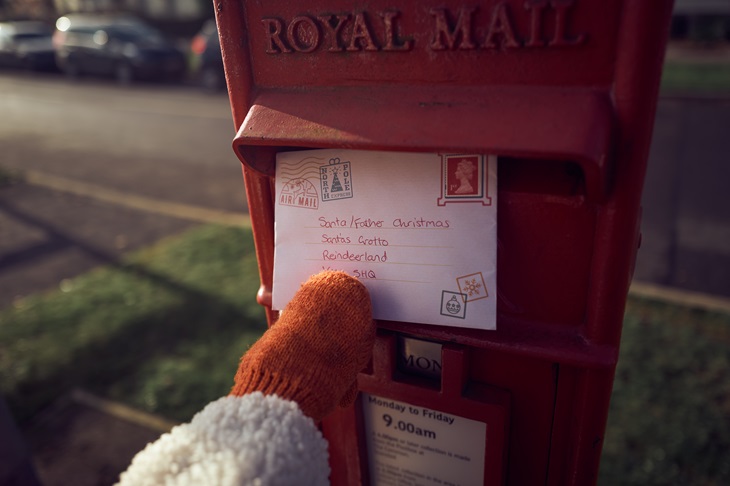 ROYAL MAIL
AIR MAIL
NORTH POLE
EXPRESS
Santa/Father Christmas
Santas Grotto
Reindeerland
SHQ
MON
Monday to Friday
9.00am